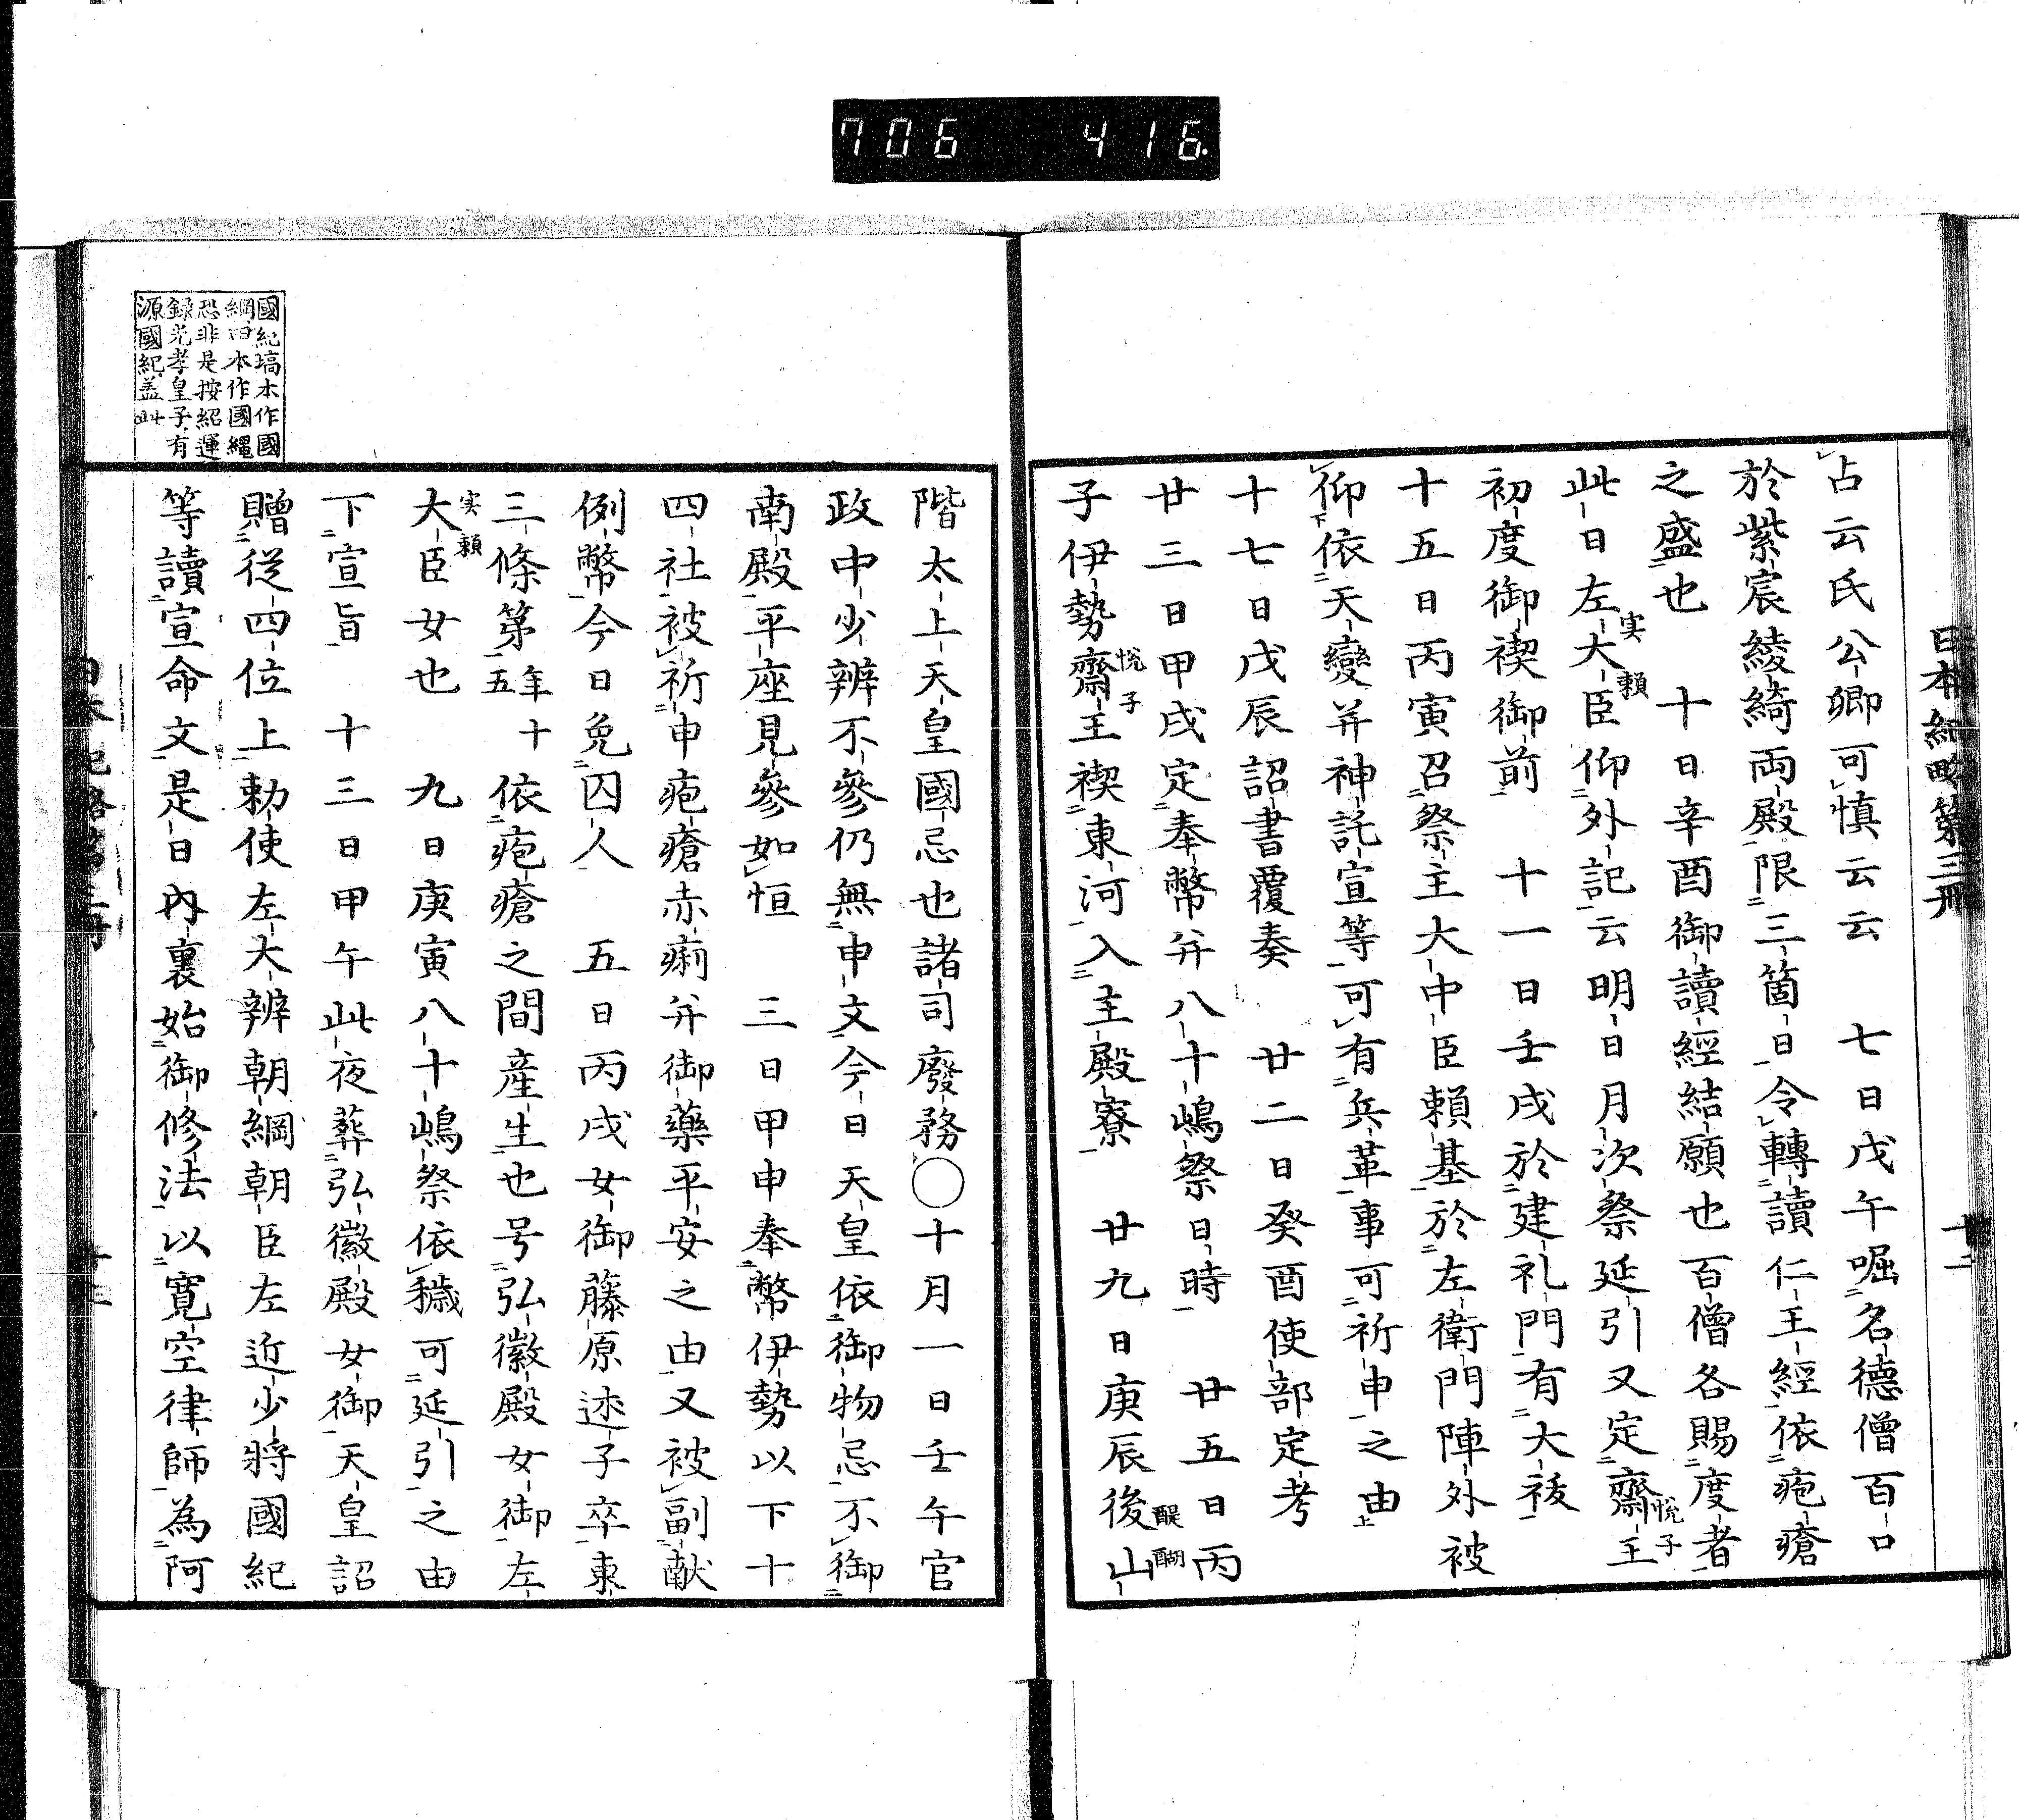 706 416
日本紀略第三冊
廿二
占云氏公卿可慎云云 七日戊午啒名德僧百口
於紫宸綾綺兩殿限三箇日令轉讀仁王經依疱瘡
之盛也 十日辛酉御讀經結願也百僧各賜度者
此日左大臣仰外記云明日月次祭延引又定齋王
実頼
悦子
初度御禊御前 十一日壬戌於建礼門有大祓
十五日丙寅召祭主大中臣頼基於左衛門陣外被
仰依天變并神託宣等可有兵革事可祈申之由
十七日戊辰詔書覆奏 廿二日癸酉使部定考
廿三日甲戌定奉幣并八十嶋祭日時 廿五日丙
子伊勢齋王禊東河入主殿寮 廿九日庚辰後山
悦子
醍醐
階太上天皇國忌也諸司廢務〇十月一日壬午官
政中少辨不參仍無申文今日天皇依御物忌不御
南殿平座見參如恒 三日甲申奉幣伊勢以下十
四社被祈申疱瘡赤痢并御藥平安之由又被副献
例幣今日免囚人 五日丙戌女御藤原述子卒東
三條第年十五依疱瘡之間産生也号弘徽殿女御左
大臣女也 九日庚寅八十嶋祭依穢可延引之由
実頼
下宣旨 十三日甲午此夜葬弘徽殿女御天皇詔
贈從四位上勅使左大辨朝綱朝臣左近少將國紀
等讀宣命文是日內裏始御修法以寛空律師為阿
國紀塙本作國
綱四本作國繩
恐非是按紹運
録光孝皇子有
源國紀盖此